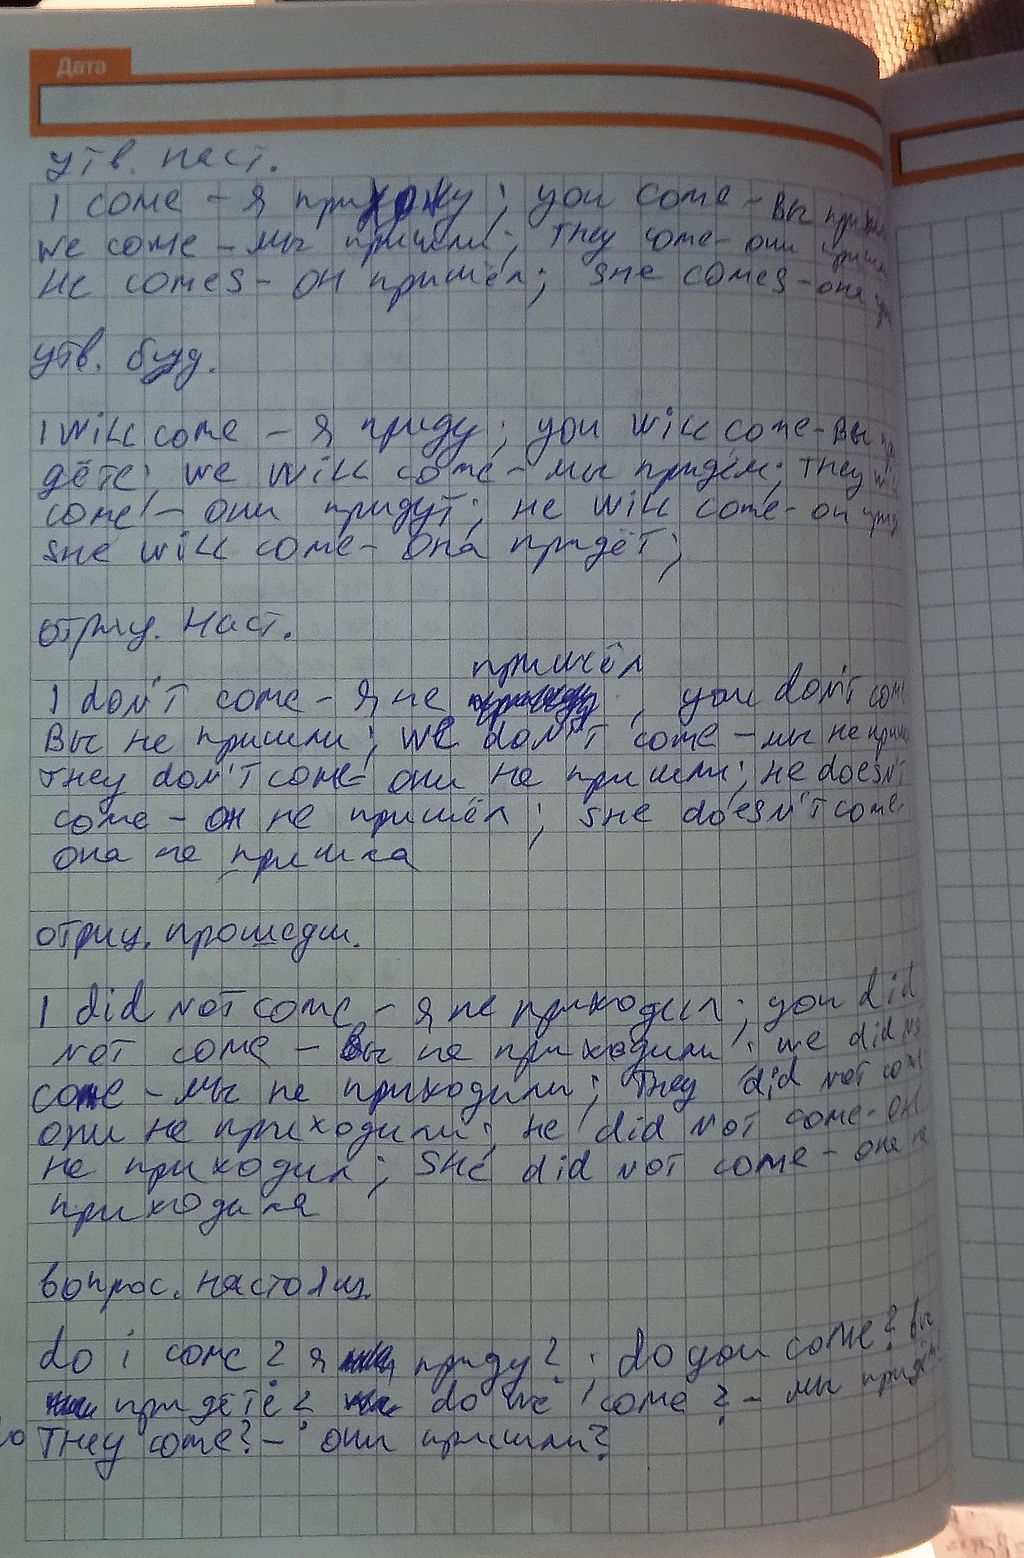 Дата
утв. наст.
I come - я прихожу; you come - Вы
we come - мы пришли; They come - они
He comes - он пришёл; She comes - она
утв. буд.
I will come - я приду; you will come - Вы
дёте; we will come - мы придём; They will
come - они придут; He will come - он
She will come - она придёт;
отриц. Наст.
пришёл
I don't come - я не ; you don't come
Вы не пришли; we don't come - мы не
They don't come - они не пришли; He doesn't
come - он не пришёл; She doesn't come
она не пришла
отриц. прошедш.
I did not come - я не приходил; you did
not come - Вы не приходили; we did
come - мы не приходили; They did not come
они не приходили; He did not come - он
не приходил; She did not come - она
приходила
вопрос. настоящ.
do i come? я приду?; do you come? Вы
придёте? do we come? - мы
They come? - они пришли?